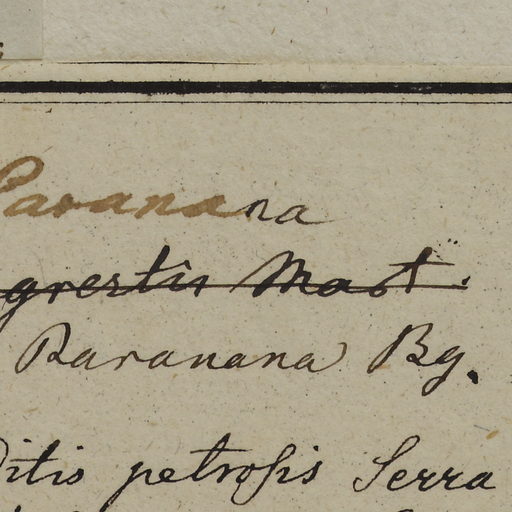 Paranana
grestis Mart.
Paranana Bg.
ditis petrosis Serra